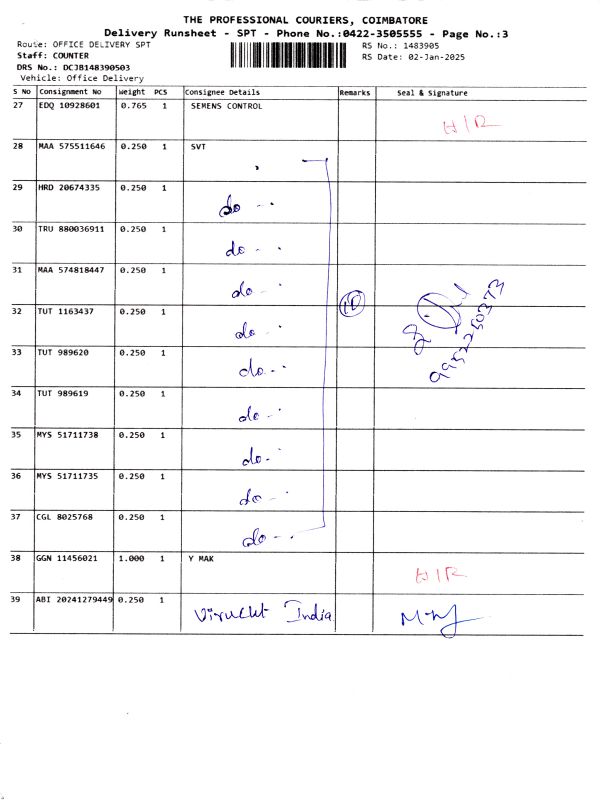 THE PROFESSIONAL COURIERS, COIMBATORE
Delivery Runsheet - SPT - Phone No.:0422-3505555 - Page No.:3
Route: OFFICE DELIVERY SPT RS No.: 1483905
Staff: COUNTER RS Date: 02-Jan-2025
DRS No.: DCJB148390503
Vehicle: Office Delivery
S No Consignment No Weight PCS Consignee Details Remarks Seal & Signature
27 EDQ 10928601 0.765 1 SEMENS CONTROL
H/R
28 MAA 575511646 0.250 1 SVT
29 HRD 20674335 0.250 1
do
30 TRU 880036911 0.250 1
do
31 MAA 574818447 0.250 1
do
10
9952250373
32 TUT 1163437 0.250 1
do
33 TUT 989620 0.250 1
do
34 TUT 989619 0.250 1
do
35 MYS 51711738 0.250 1
do
36 MYS 51711735 0.250 1
do
37 CGL 8025768 0.250 1
do
38 GGN 11456021 1.000 1 Y MAK
H/R
39 ABI 20241279449 0.250 1
India